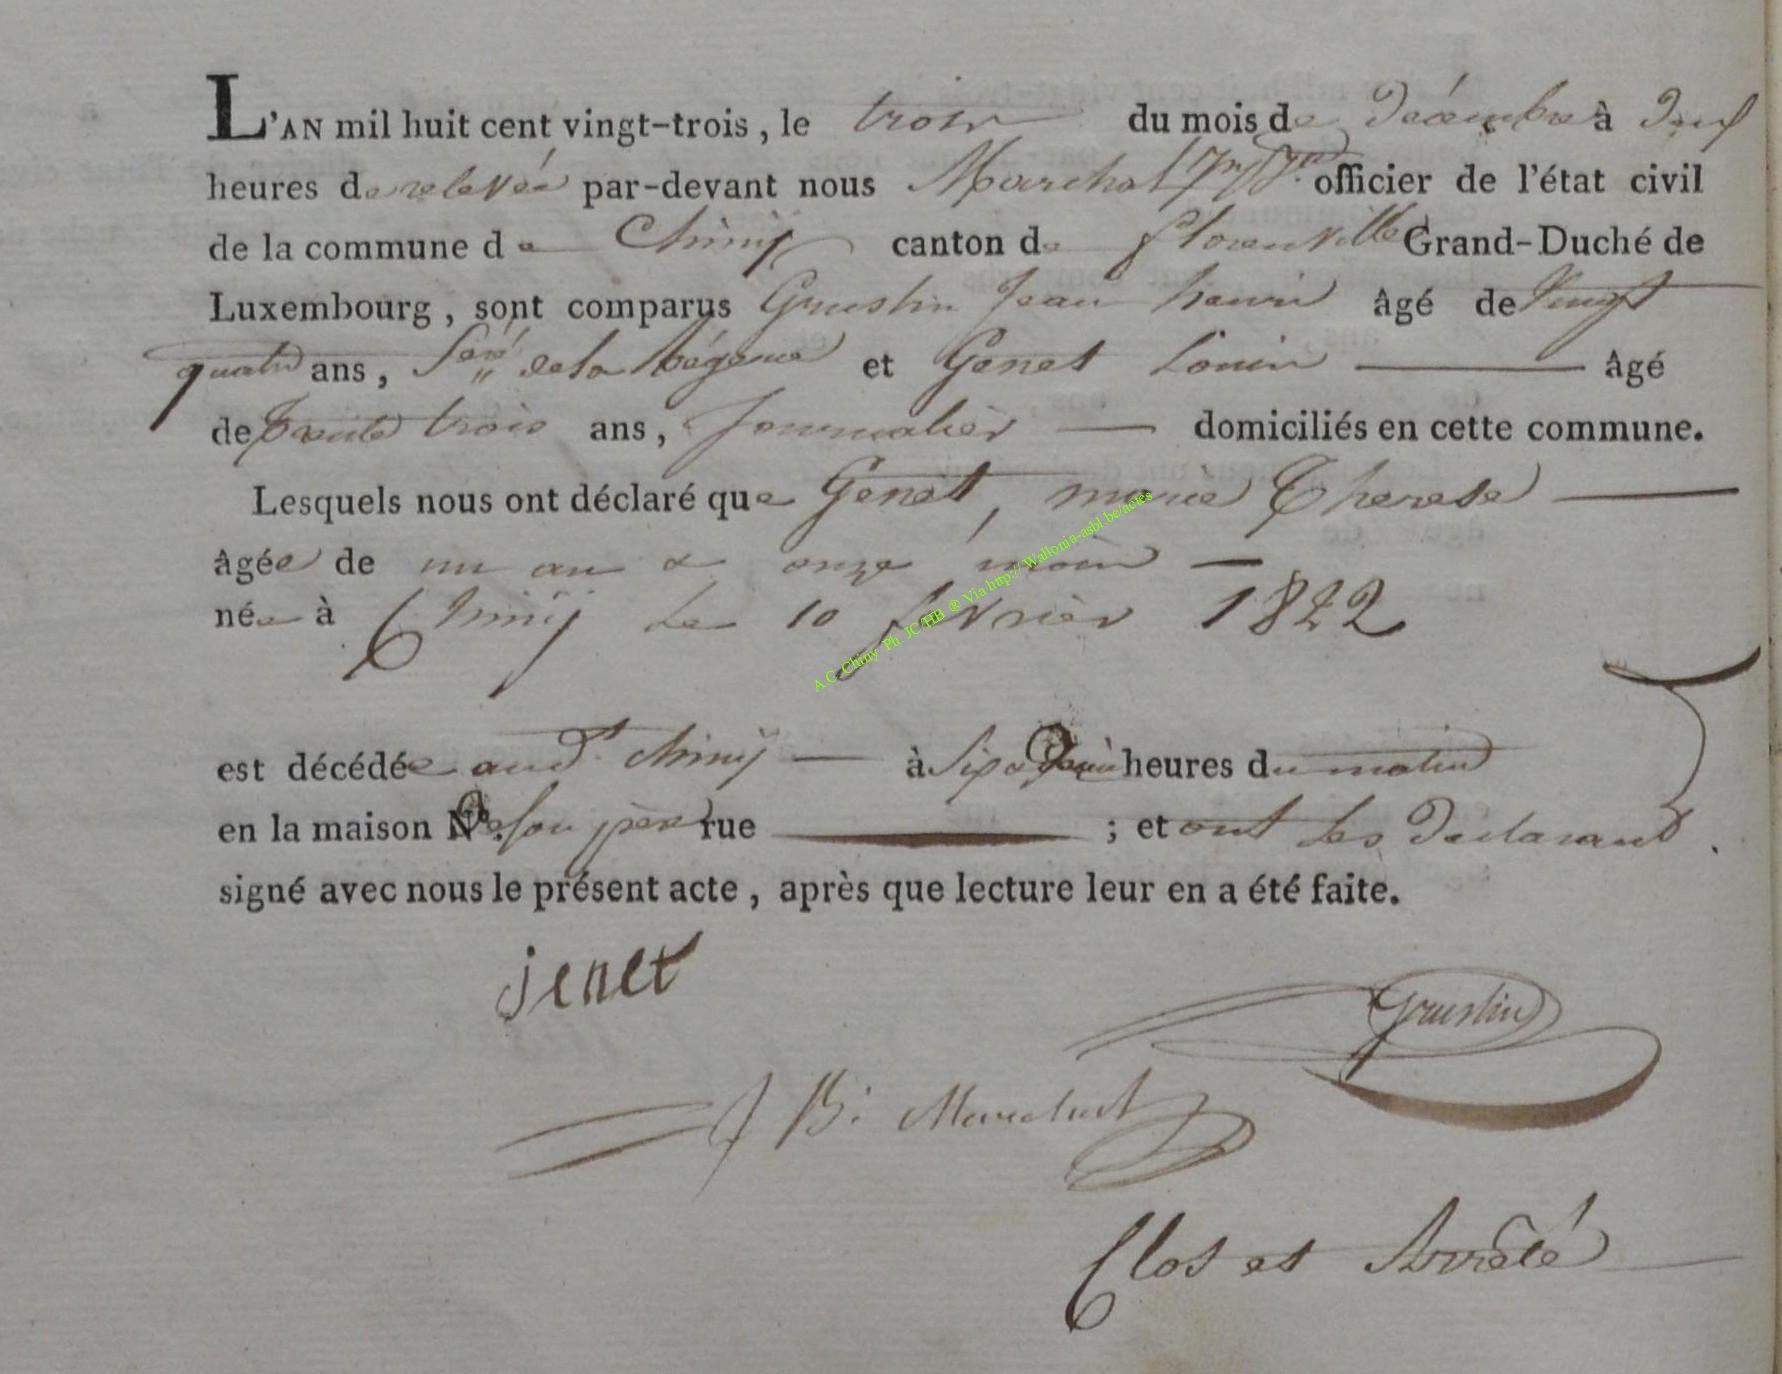 L'AN mil huit cent vingt-trois, le trois du mois de décembre à deux
heures de relevée par-devant nous Marchal officier de l'état civil
de la commune de Chiny canton de florenville Grand-Duché de
Luxembourg, sont comparus Gruslin Jean henri âgé de Vingt
quatre ans, de la régence et Genet Louis âgé
de trente trois ans, Journalièr domiciliés en cette commune.
Lesquels nous ont déclaré que Genet, marie Therese
âgée de un an & onze mois
née à Chinÿ Le 10 fevrièr 1822
A.C. Chiny Ph. JC/HB ® Via http://Wallonia-asbl.be/actes
est décédée aud.t chinÿ à Six heures du matin
en la maison N.º de son père rue ; et ont Les Déclarant
signé avec nous le présent acte, après que lecture leur en a été faite.
jenet
Gruslin
J B: Marchal
Clos et Arrêté